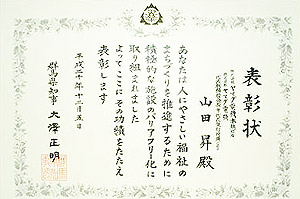 表彰状
山田昇殿
あなたは人にやさしい福祉の
まちづくりを推進するために
積極的な施設のバリアフリー化に
取り組まれました
よってここにその功績をたたえ
表彰します
平成二十年十二月五日
群馬県知事 大澤正明